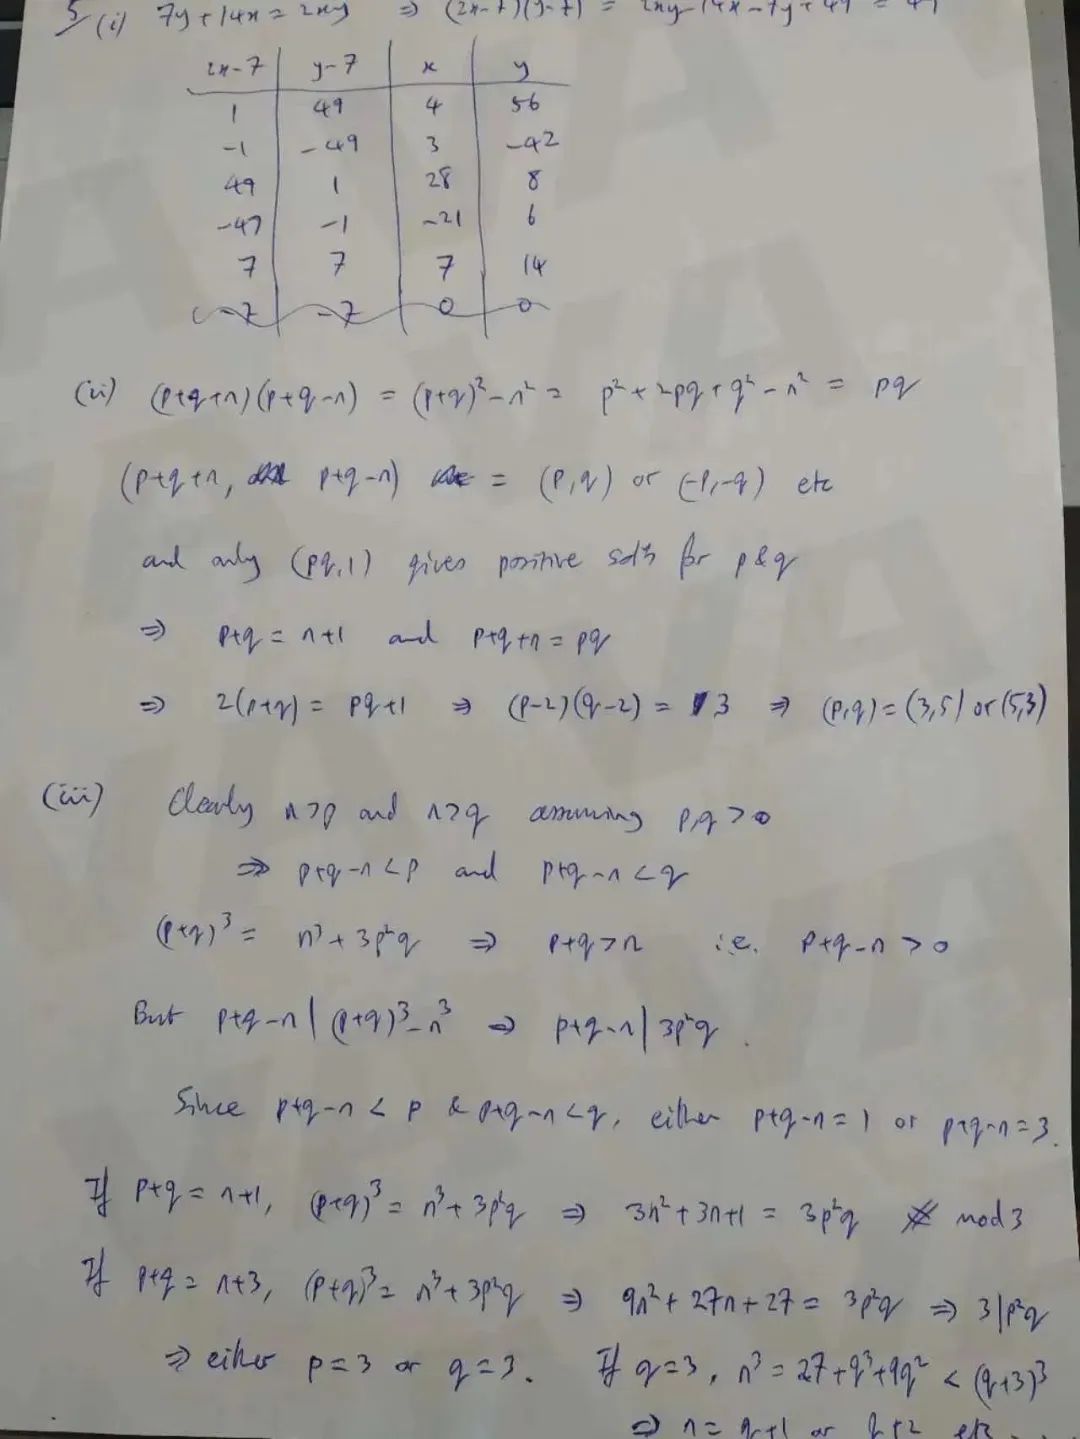 5 (i) 7y + 14x = 2xy ⇒ (2x-7)(y-7) = 2xy-14x-7y+49 = 49
2x-7 y-7 x y
1 49 4 56
-1 -49 3 -42
49 1 28 8
-49 -1 -21 6
7 7 7 14
-7 -7 0 0
(ii) (p+q+n)(p+q-n) = (p+q)²-n² = p²+2pq+q²-n² = pq
(p+q+n, p+q-n) = (p,q) or (-p,-q) etc
and only (pq,1) gives positive solⁿs for p&q
⇒ p+q = n+1 and p+q+n = pq
⇒ 2(p+q) = pq+1 ⇒ (p-2)(q-2) = 3 ⇒ (p,q) = (3,5) or (5,3)
(iii) Clearly n>p and n>q assuming p,q>0
⇒ p+q-n<p and p+q-n<q
(p+q)³ = n³+3p²q ⇒ p+q>n i.e. p+q-n>0
But p+q-n | (p+q)³-n³ ⇒ p+q-n | 3p²q.
Since p+q-n < p & p+q-n<q, either p+q-n=1 or p+q-n=3.
If p+q = n+1, (p+q)³ = n³+3p²q ⇒ 3n²+3n+1 = 3p²q ※ mod 3
If p+q = n+3, (p+q)³ = n³+3p²q ⇒ 9n²+27n+27 = 3p²q ⇒ 3|p²q
⇒ either p=3 or q=3. If q=3, n³ = 27+q³+9q² < (q+3)³
⇒ n = q+1 or q+2 etc...